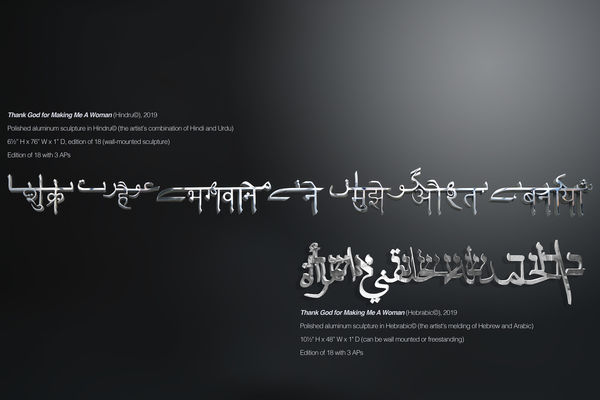 Thank God for Making Me A Woman (Hindru©), 2019
Polished aluminum sculpture in Hindru© (the artist's combination of Hindi and Urdu)
6½" H x 76" W x 1" D, edition of 18 (wall-mounted sculpture)
Edition of 18 with 3 APs
शुक्र है भगवान ने मुझे औरत बनाया
Thank God for Making Me A Woman (Hebrabic©), 2019
Polished aluminum sculpture in Hebrabic© (the artist's melding of Hebrew and Arabic)
10½" H x 48" W x 1" D (can be wall mounted or freestanding)
Edition of 18 with 3 APs